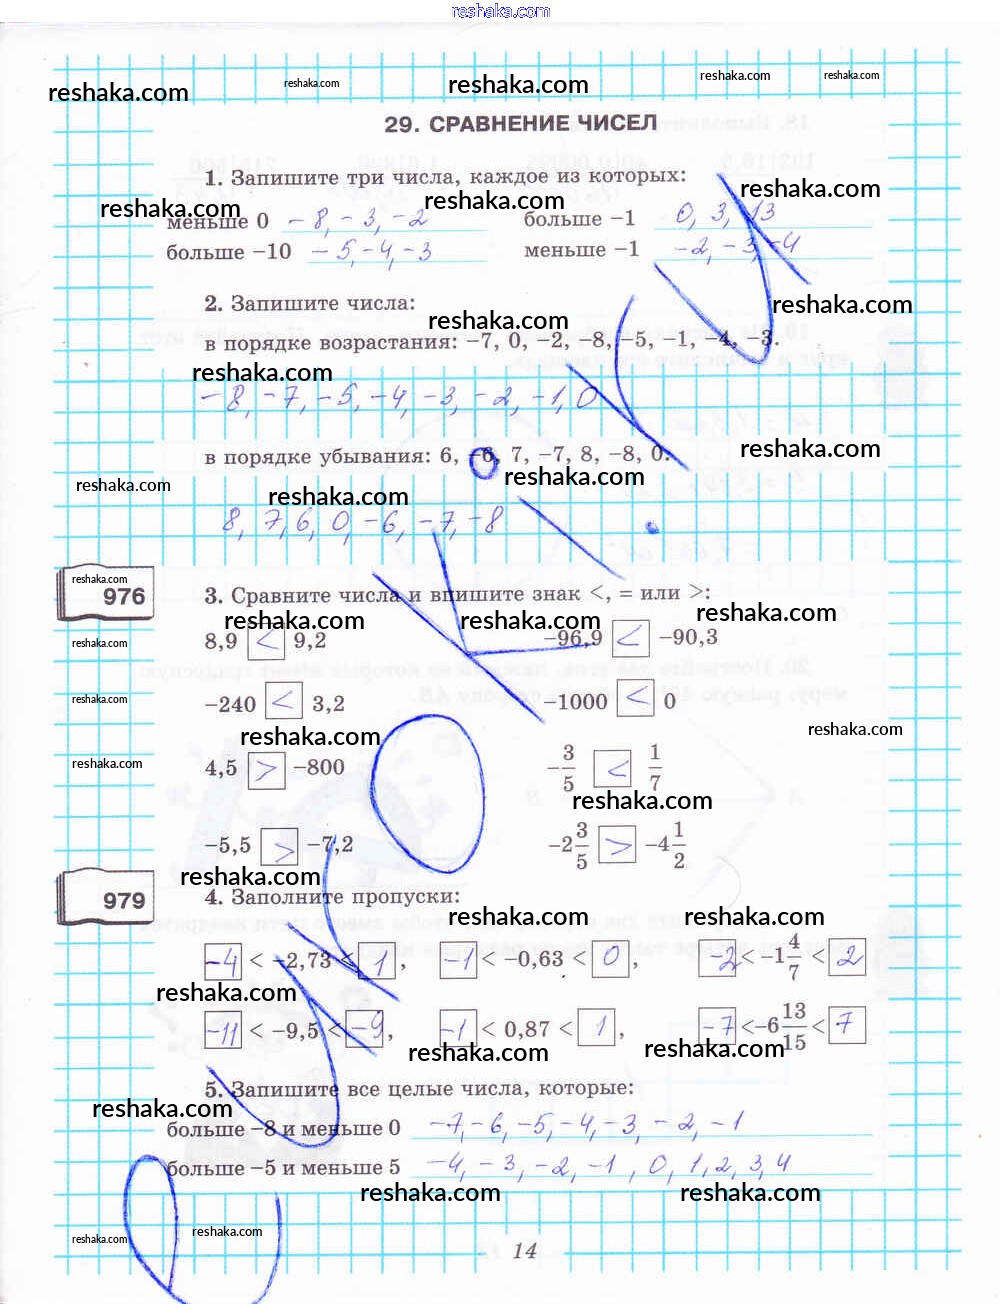 reshaka.com
reshaka.com reshaka.com reshaka.com reshaka.com reshaka.com
29. СРАВНЕНИЕ ЧИСЕЛ
1. Запишите три числа, каждое из которых:
reshaka.com reshaka.com reshaka.com
меньше 0 −8, −3, −2 больше −1 0, 3, 13
больше −10 −5, −4, −3 меньше −1 −2, −3, −4
2. Запишите числа:
reshaka.com reshaka.com
в порядке возрастания: −7, 0, −2, −8, −5, −1, −4, −3.
reshaka.com
−8, −7, −5, −4, −3, −2, −1, 0
в порядке убывания: 6, −6, 7, −7, 8, −8, 0.
reshaka.com
reshaka.com reshaka.com reshaka.com
8, 7, 6, 0, −6, −7, −8
reshaka.com
976
3. Сравните числа и впишите знак <, = или >:
reshaka.com reshaka.com reshaka.com
8,9 < 9,2 −96,9 < −90,3
reshaka.com
−240 < 3,2 −1000 < 0
reshaka.com reshaka.com reshaka.com
4,5 > −800 −3/5 < 1/7
reshaka.com reshaka.com
−5,5 > −7,2 −2 3/5 > −4 1/2
reshaka.com
979
4. Заполните пропуски:
reshaka.com reshaka.com
−4 < −2,73 < 1, −1 < −0,63 < 0, −2 < −1 4/7 < 2
reshaka.com
−11 < −9,5 < −9, −1 < 0,87 < 1, −7 < −6 13/15 < 7
reshaka.com reshaka.com
5. Запишите все целые числа, которые:
reshaka.com
больше −8 и меньше 0 −7, −6, −5, −4, −3, −2, −1
больше −5 и меньше 5 −4, −3, −2, −1, 0, 1, 2, 3, 4
reshaka.com reshaka.com
reshaka.com reshaka.com
14